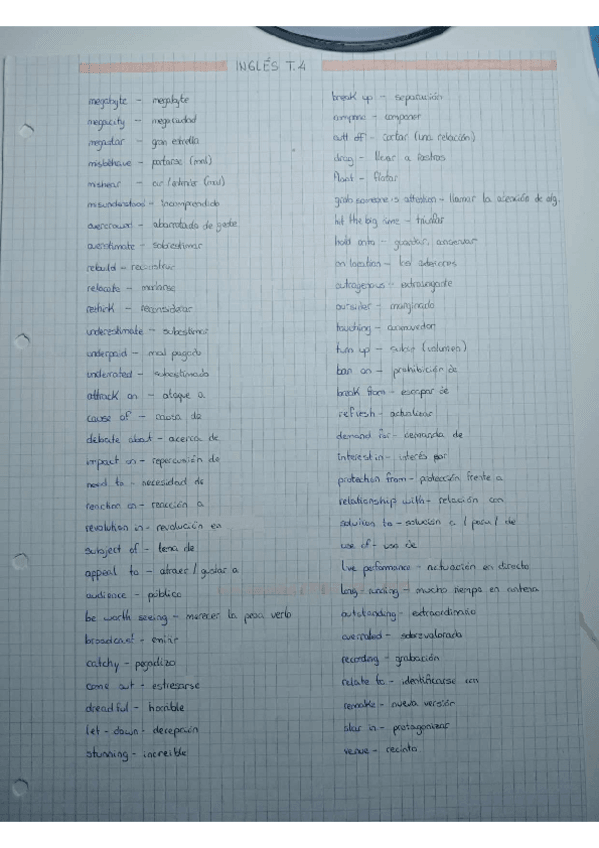 INGLÉS T.4
megabyte - megabyte
megacity - megaciudad
megastar - gran estrella
misbehave - portarse (mal)
mishear - oir / entender (mal)
misunderstood - incomprendido
overcrowd - abarrotado de gente
overestimate - sobrestimar
rebuild - reconstruir
relocate - mudarse
rethink - reconsiderar
underestimate - subestimar
underpaid - mal pagado
underrated - subestimado
attack on - ataque a
cause of - causa de
debate about - acerca de
impact on - repercusión de
need to - necesidad de
reaction on - reacción a
revolution in - revolución en
subject of - tema de
appeal to - atraer / gustar a
audience - público
be worth seeing - merecer la pena verlo
broadcast - emitir
catchy - pegadizo
come out - estresarse
dreadful - horrible
let - down - decepción
stunning - increíble
break up - separación
compose - componer
cutt off - cortar (una relación)
drag - llevar a rastras
float - flotar
grab someone is attention - llamar la atención de alg.
hit the big time - triunfar
hold onto - guardar, conservar
on location - en exteriores
outrageous - extravagante
outsider - marginado
touching - conmovedor
turn up - subir (volumen)
ban on - prohibición de
break from - escapar de
refresh - actualizar
demand for - demanda de
interest in - interés por
protection from - protección frente a
relationship with - relación con
solution to - solución a / para / de
use of - uso de
live performance - actuación en directo
long - running - mucho tiempo en cartelera
outstanding - extraordinario
overrated - sobrevalorada
recording - grabación
relate to - identificarse con
remake - nueva versión
star in - protagonizar
venue - recinto